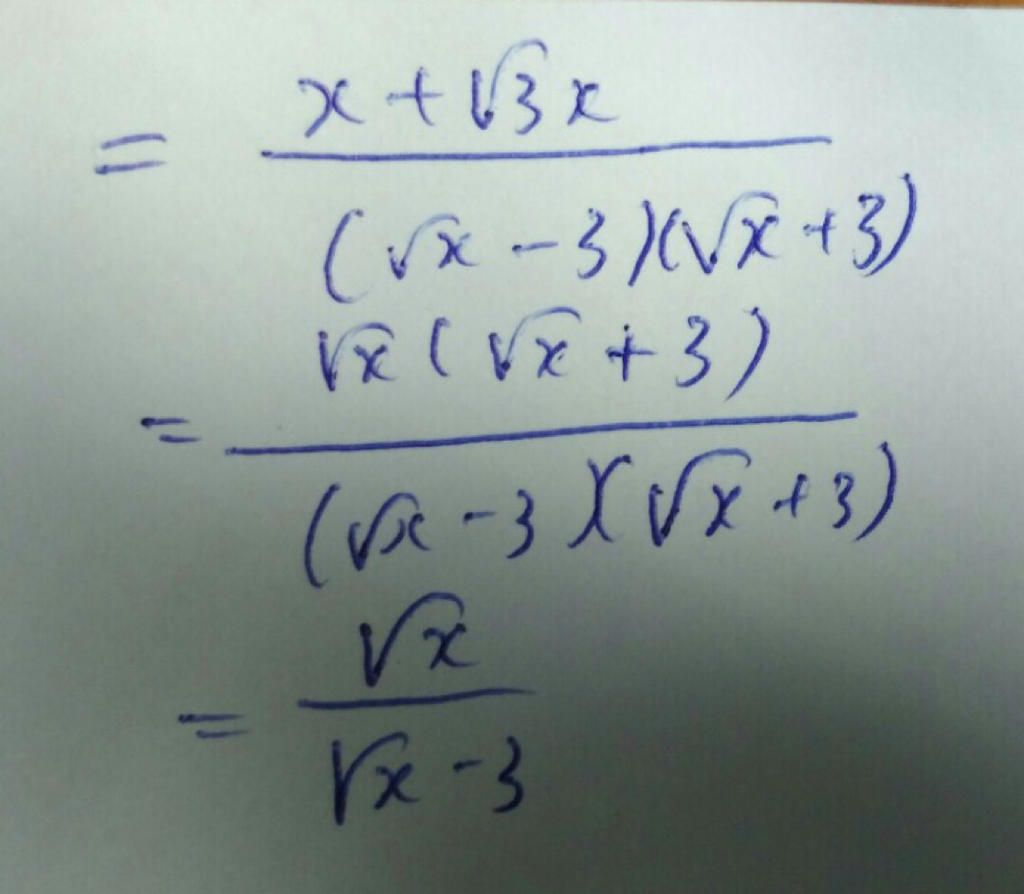 = x + √3 x
(√x - 3)(√x + 3)
√x (√x + 3)
=
(√x - 3)(√x + 3)
√x
=
√x - 3